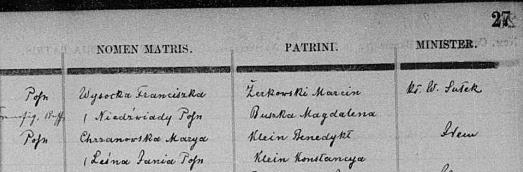 27
NOMEN MATRIS. PATRINI. MINISTER.
Posn Wysocka Franciszka Żurkowski Marcin W. Sułek
( Niedźwiady Posn Buszka Magdalena
Posn Chrzanowska Marya Klein Benedykt Idem
(Leśna Jania Posn Klein Konstancya